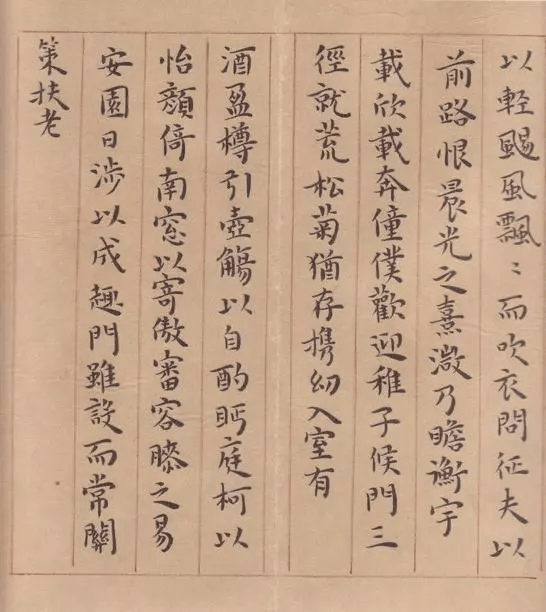 以輕颺風飄〻而吹衣問征夫以
前路恨晨光之熹微乃瞻衡宇
載欣載奔僮僕歡迎稚子候門三
徑就荒松菊猶存攜幼入室有
酒盈樽引壺觴以自酌眄庭柯以
怡顏倚南窓以寄傲審容膝之易
安園日涉以成趣門雖設而常關
策扶老